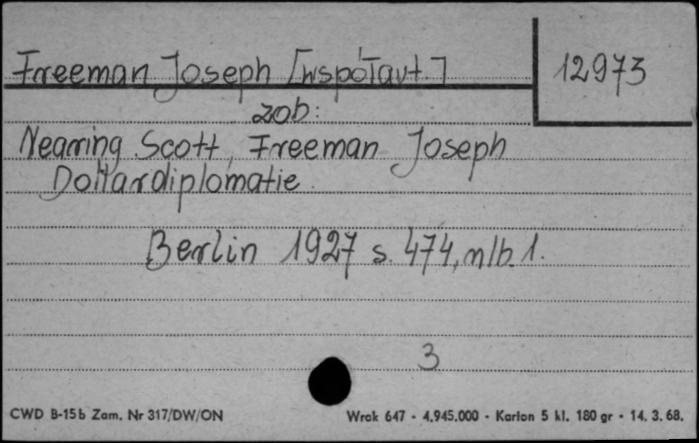 Freeman Joseph [współaut.] 12973
zob:
Nearing Scott, Freeman Joseph
Dollardiplomatie.
Berlin 1927 s. 474, nlb. 1.
3
CWD B-15b Zam. Nr 317/DW/ON Wrak 647 - 4.945.000 - Karton 5 kl. 180 gr - 14. 3. 68.